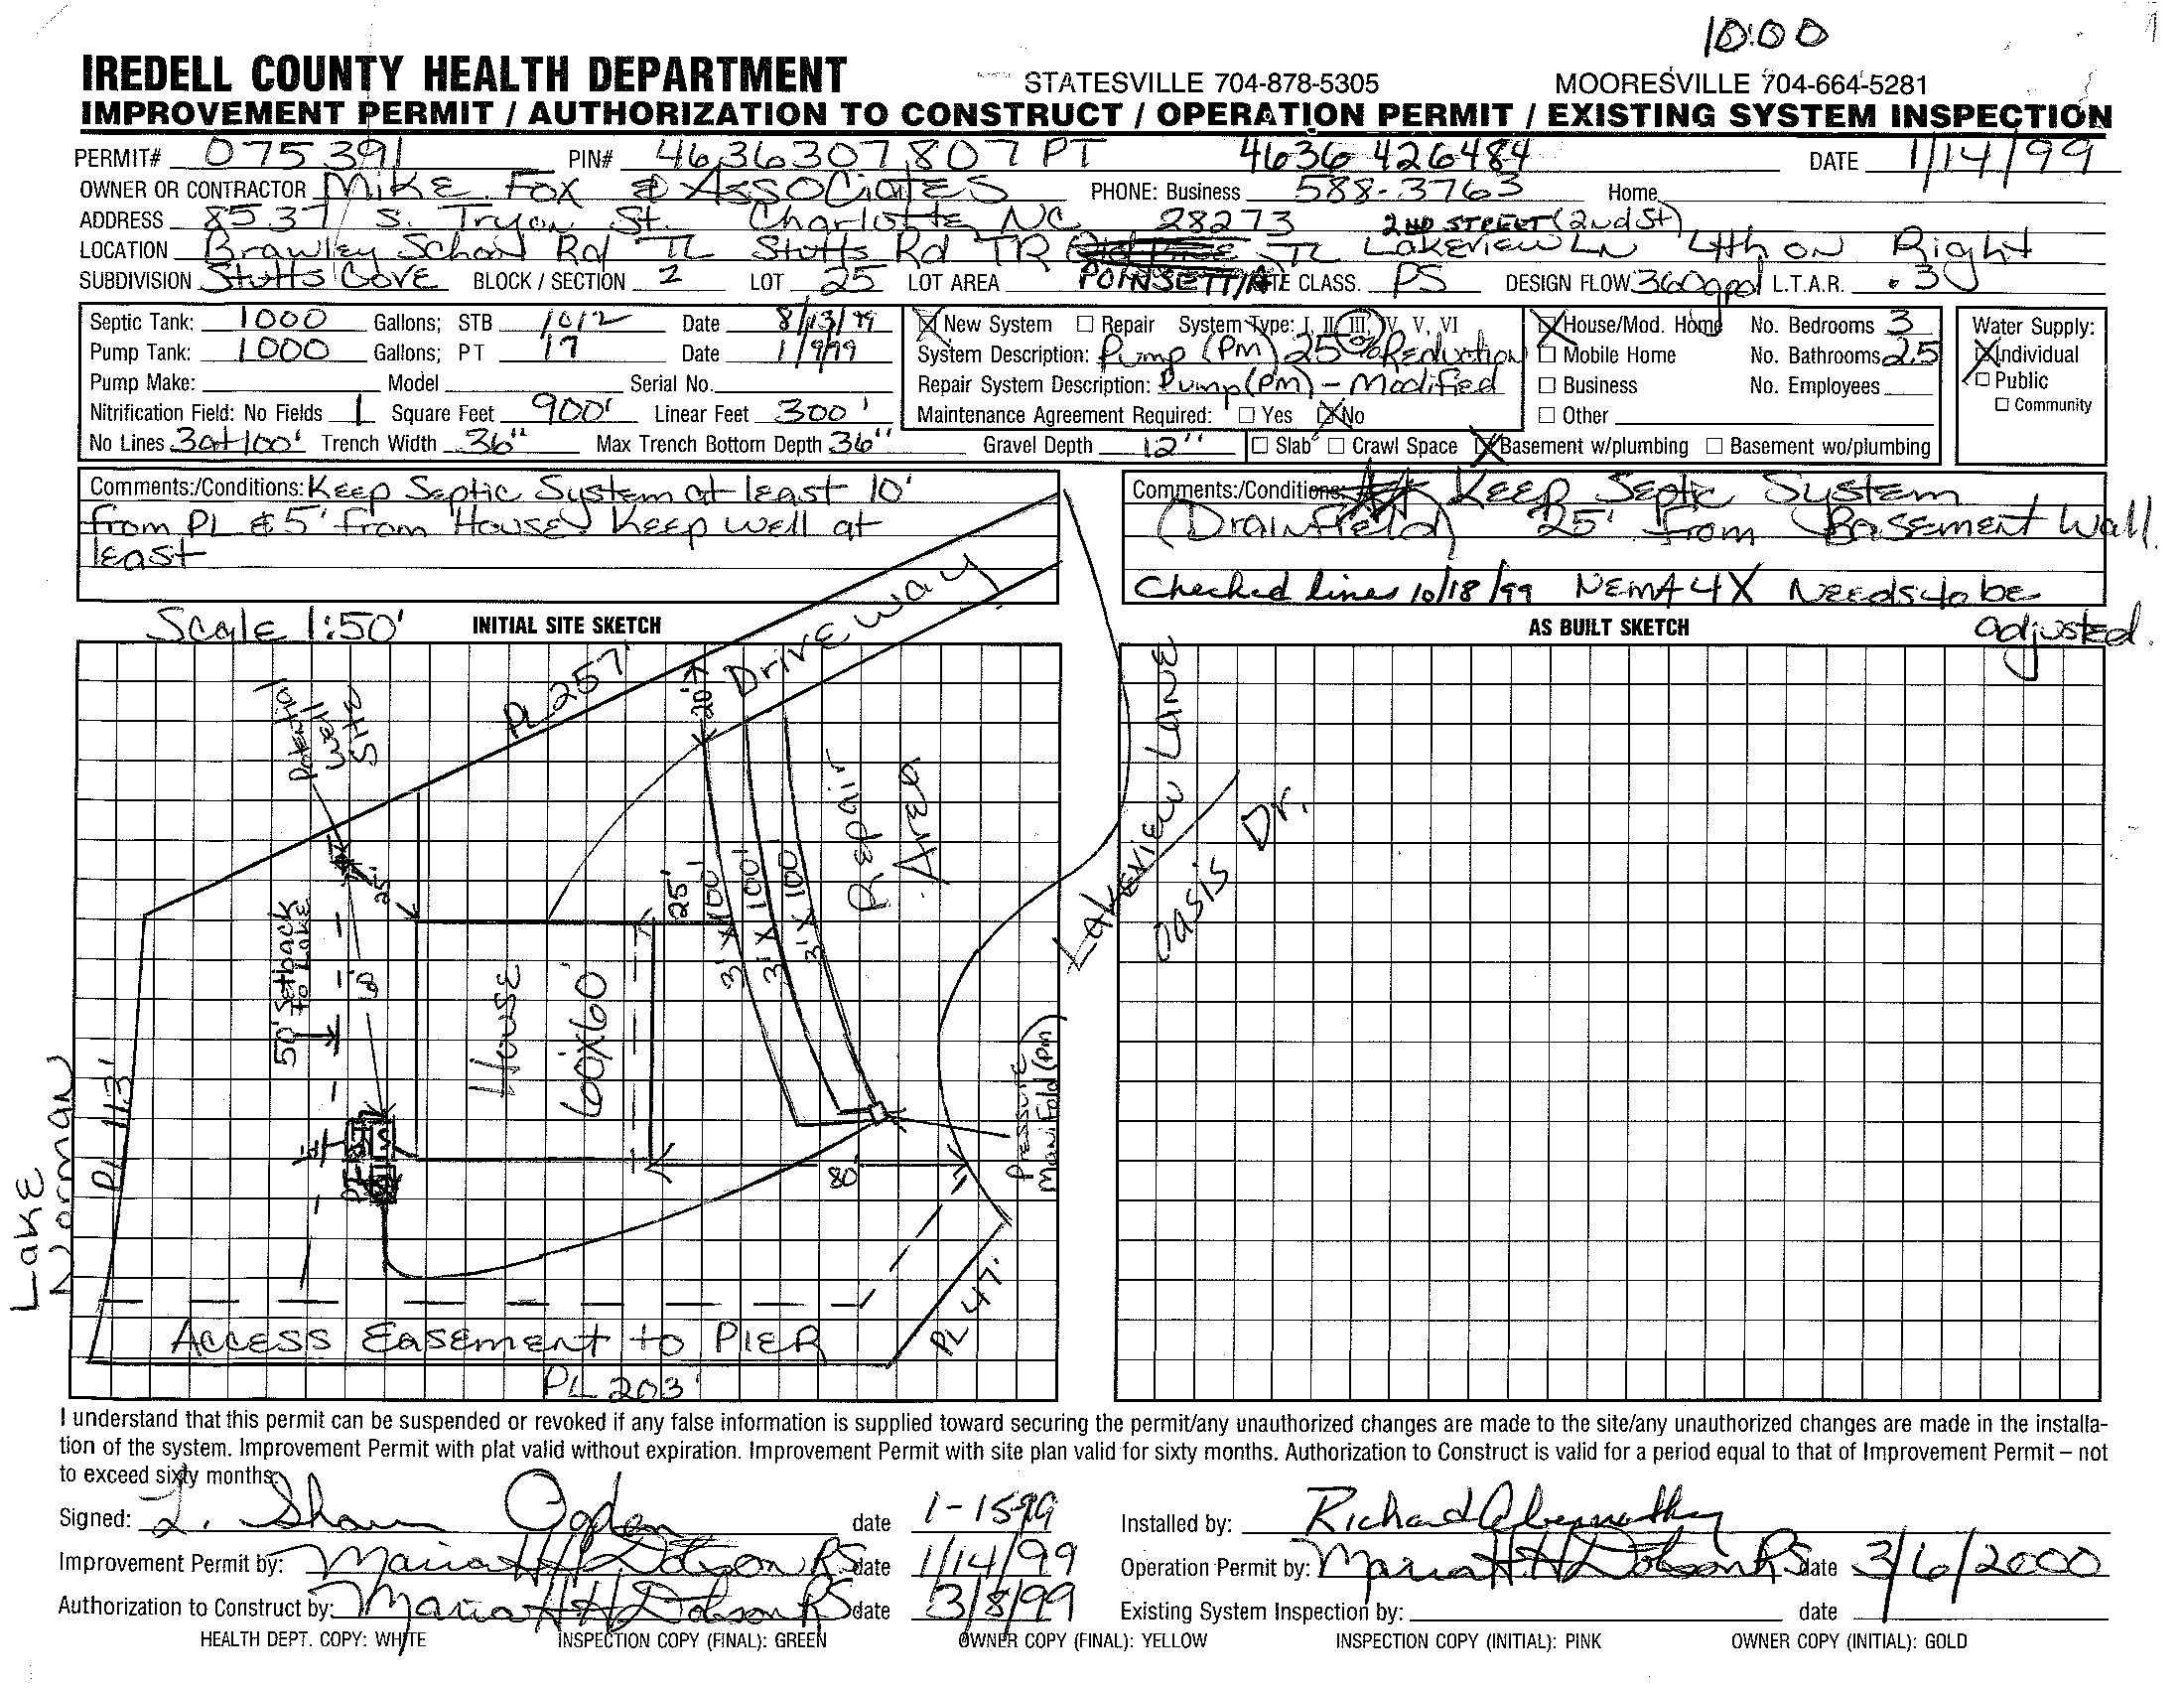 10:00
IREDELL COUNTY HEALTH DEPARTMENT STATESVILLE 704-878-5305 MOORESVILLE 704-664-5281
IMPROVEMENT PERMIT / AUTHORIZATION TO CONSTRUCT / OPERATION PERMIT / EXISTING SYSTEM INSPECTION
PERMIT# 075391 PIN# 4636307807 PT 4636 426484 DATE 1/14/99
OWNER OR CONTRACTOR MIKE FOX & ASSOCIATES PHONE: Business 588-3763 Home
ADDRESS 8537 S. Tryon St. Charlotte, NC 28273 2ND STREET (2nd St)
LOCATION Brawley School Rd TL Stutts Rd TR TL Lakeview LN 4th on Right
SUBDIVISION Stutts Cove BLOCK / SECTION 2 LOT 25 LOT AREA POINSETTIA SITE CLASS. PS DESIGN FLOW 360gpd L.T.A.R. .3
Septic Tank: 1000 Gallons; STB 1012 Date 8/13/99
Pump Tank: 1000 Gallons; PT 17 Date 1/9/99
Pump Make: Model Serial No.
Nitrification Field: No Fields 1 Square Feet 900' Linear Feet 300'
No Lines 3at100' Trench Width 36" Max Trench Bottom Depth 36" Gravel Depth 12"
New System Repair System Type: I, II, III, IV, V, VI
System Description: Pump (PM) 25% Reduction
Repair System Description: Pump (PM) - Modified
Maintenance Agreement Required: Yes No
Slab Crawl Space Basement w/plumbing Basement wo/plumbing
House/Mod. Home No. Bedrooms 3
Mobile Home No. Bathrooms 2.5
Business No. Employees
Other
Water Supply:
Individual
Public
Community
Comments:/Conditions: Keep Septic System at least 10'
from PL & 5' from House. Keep well at
least
Comments:/Conditions: Keep Septic System
(Drainfield) 25' from Basement Wall.
Checked lines 10/18/99 NEMA 4X Needs to be
adjusted.
Scale 1:50' INITIAL SITE SKETCH
AS BUILT SKETCH
Driveway
PL 257'
20'
Potential
Well
Site
Repair
Area
LAKEVIEW LANE
Lakeview
Oasis Dr.
25'
25'
3' X 100'
3' X 100'
3' X 100'
50' Setback
to Lake
House
60'X60'
Pressure
Manifold (PM)
80'
PL 113'
Lake
Norman
PL 47'
Access Easement to PIER
PL 203'
I understand that this permit can be suspended or revoked if any false information is supplied toward securing the permit/any unauthorized changes are made to the site/any unauthorized changes are made in the installa-
tion of the system. Improvement Permit with plat valid without expiration. Improvement Permit with site plan valid for sixty months. Authorization to Construct is valid for a period equal to that of Improvement Permit – not
to exceed sixty months.
Signed: L. Shawn Ogden date 1-15-99
Improvement Permit by: Maria H H Dotson RS date 1/14/99
Authorization to Construct by: Maria H H Dotson RS date 3/8/99
Installed by: Richard Abernathy
Operation Permit by: Maria H H Dotson RS date 3/6/2000
Existing System Inspection by: date
HEALTH DEPT. COPY: WHITE INSPECTION COPY (FINAL): GREEN OWNER COPY (FINAL): YELLOW INSPECTION COPY (INITIAL): PINK OWNER COPY (INITIAL): GOLD